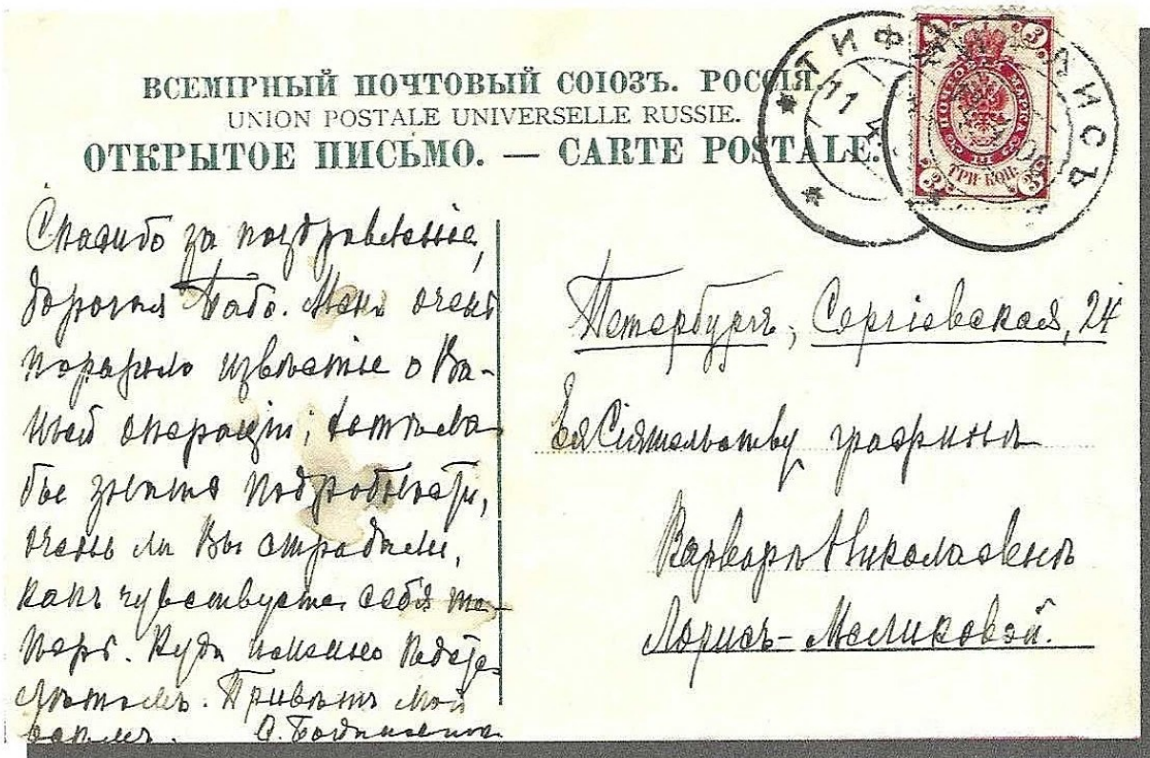 ВСЕМІРНЫЙ ПОЧТОВЫЙ СОЮЗЪ. РОССІЯ.
UNION POSTALE UNIVERSELLE RUSSIE.
ОТКРЫТОЕ ПИСЬМО. — CARTE POSTALE.
ТИФЛИСЪ
11 4
3 3
ПОЧТОВАЯ МАРКА
ТРИ КОП.
3 3
Спасибо за поздравленіе,
дорогая Бабо. Меня очень
поразило извѣстіе о Ва-
шей операціи; хотѣла
бы знать подробности,
очень ли Вы страдали,
какъ чувствуете себя те-
перь. Куда именно ѣдете
лѣтомъ. Привѣтъ мой
всѣмъ.
Петербургъ, Сергіевская, 24
Ея Сіятельству графинѣ
Варварѣ Николаевнѣ
Лорисъ-Меликовой.